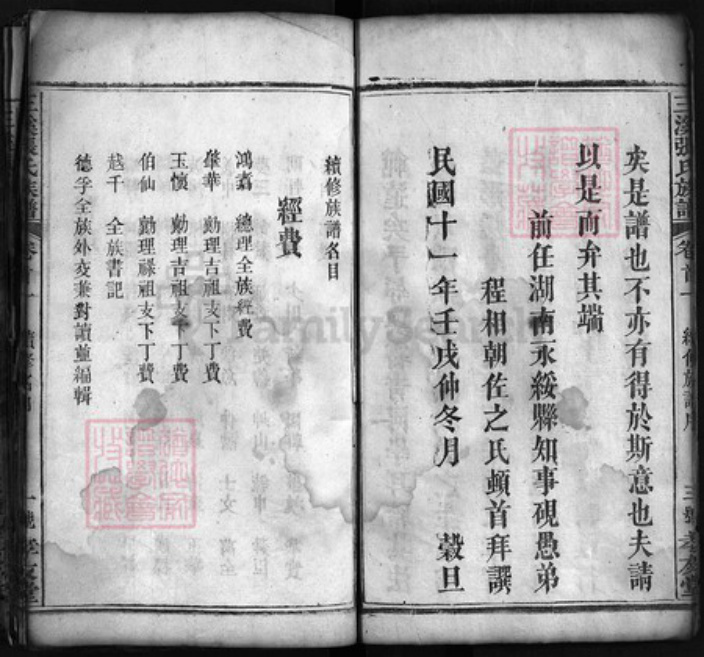 矣是譜也不亦有得於斯意也夫請
以是而弁其端
前任湖南永綏縣知事硯愚弟
程相朝佐之氏頓首拜譔
民國十一年壬戌仲冬月 穀旦
三溪張氏族譜 卷首一 續修族譜序 三號 孝友堂
續修族譜名目
經費
鴻燾 總理全族經費
肇華 勷理吉祖支下丁費
玉懷 勷理吉祖支下丁費
伯仙 勷理祿祖支下丁費
越千 全族書記
德孚 全族外交兼對讀並編輯
三溪張氏族譜 卷首一 一號 孝友堂
FamilySearch